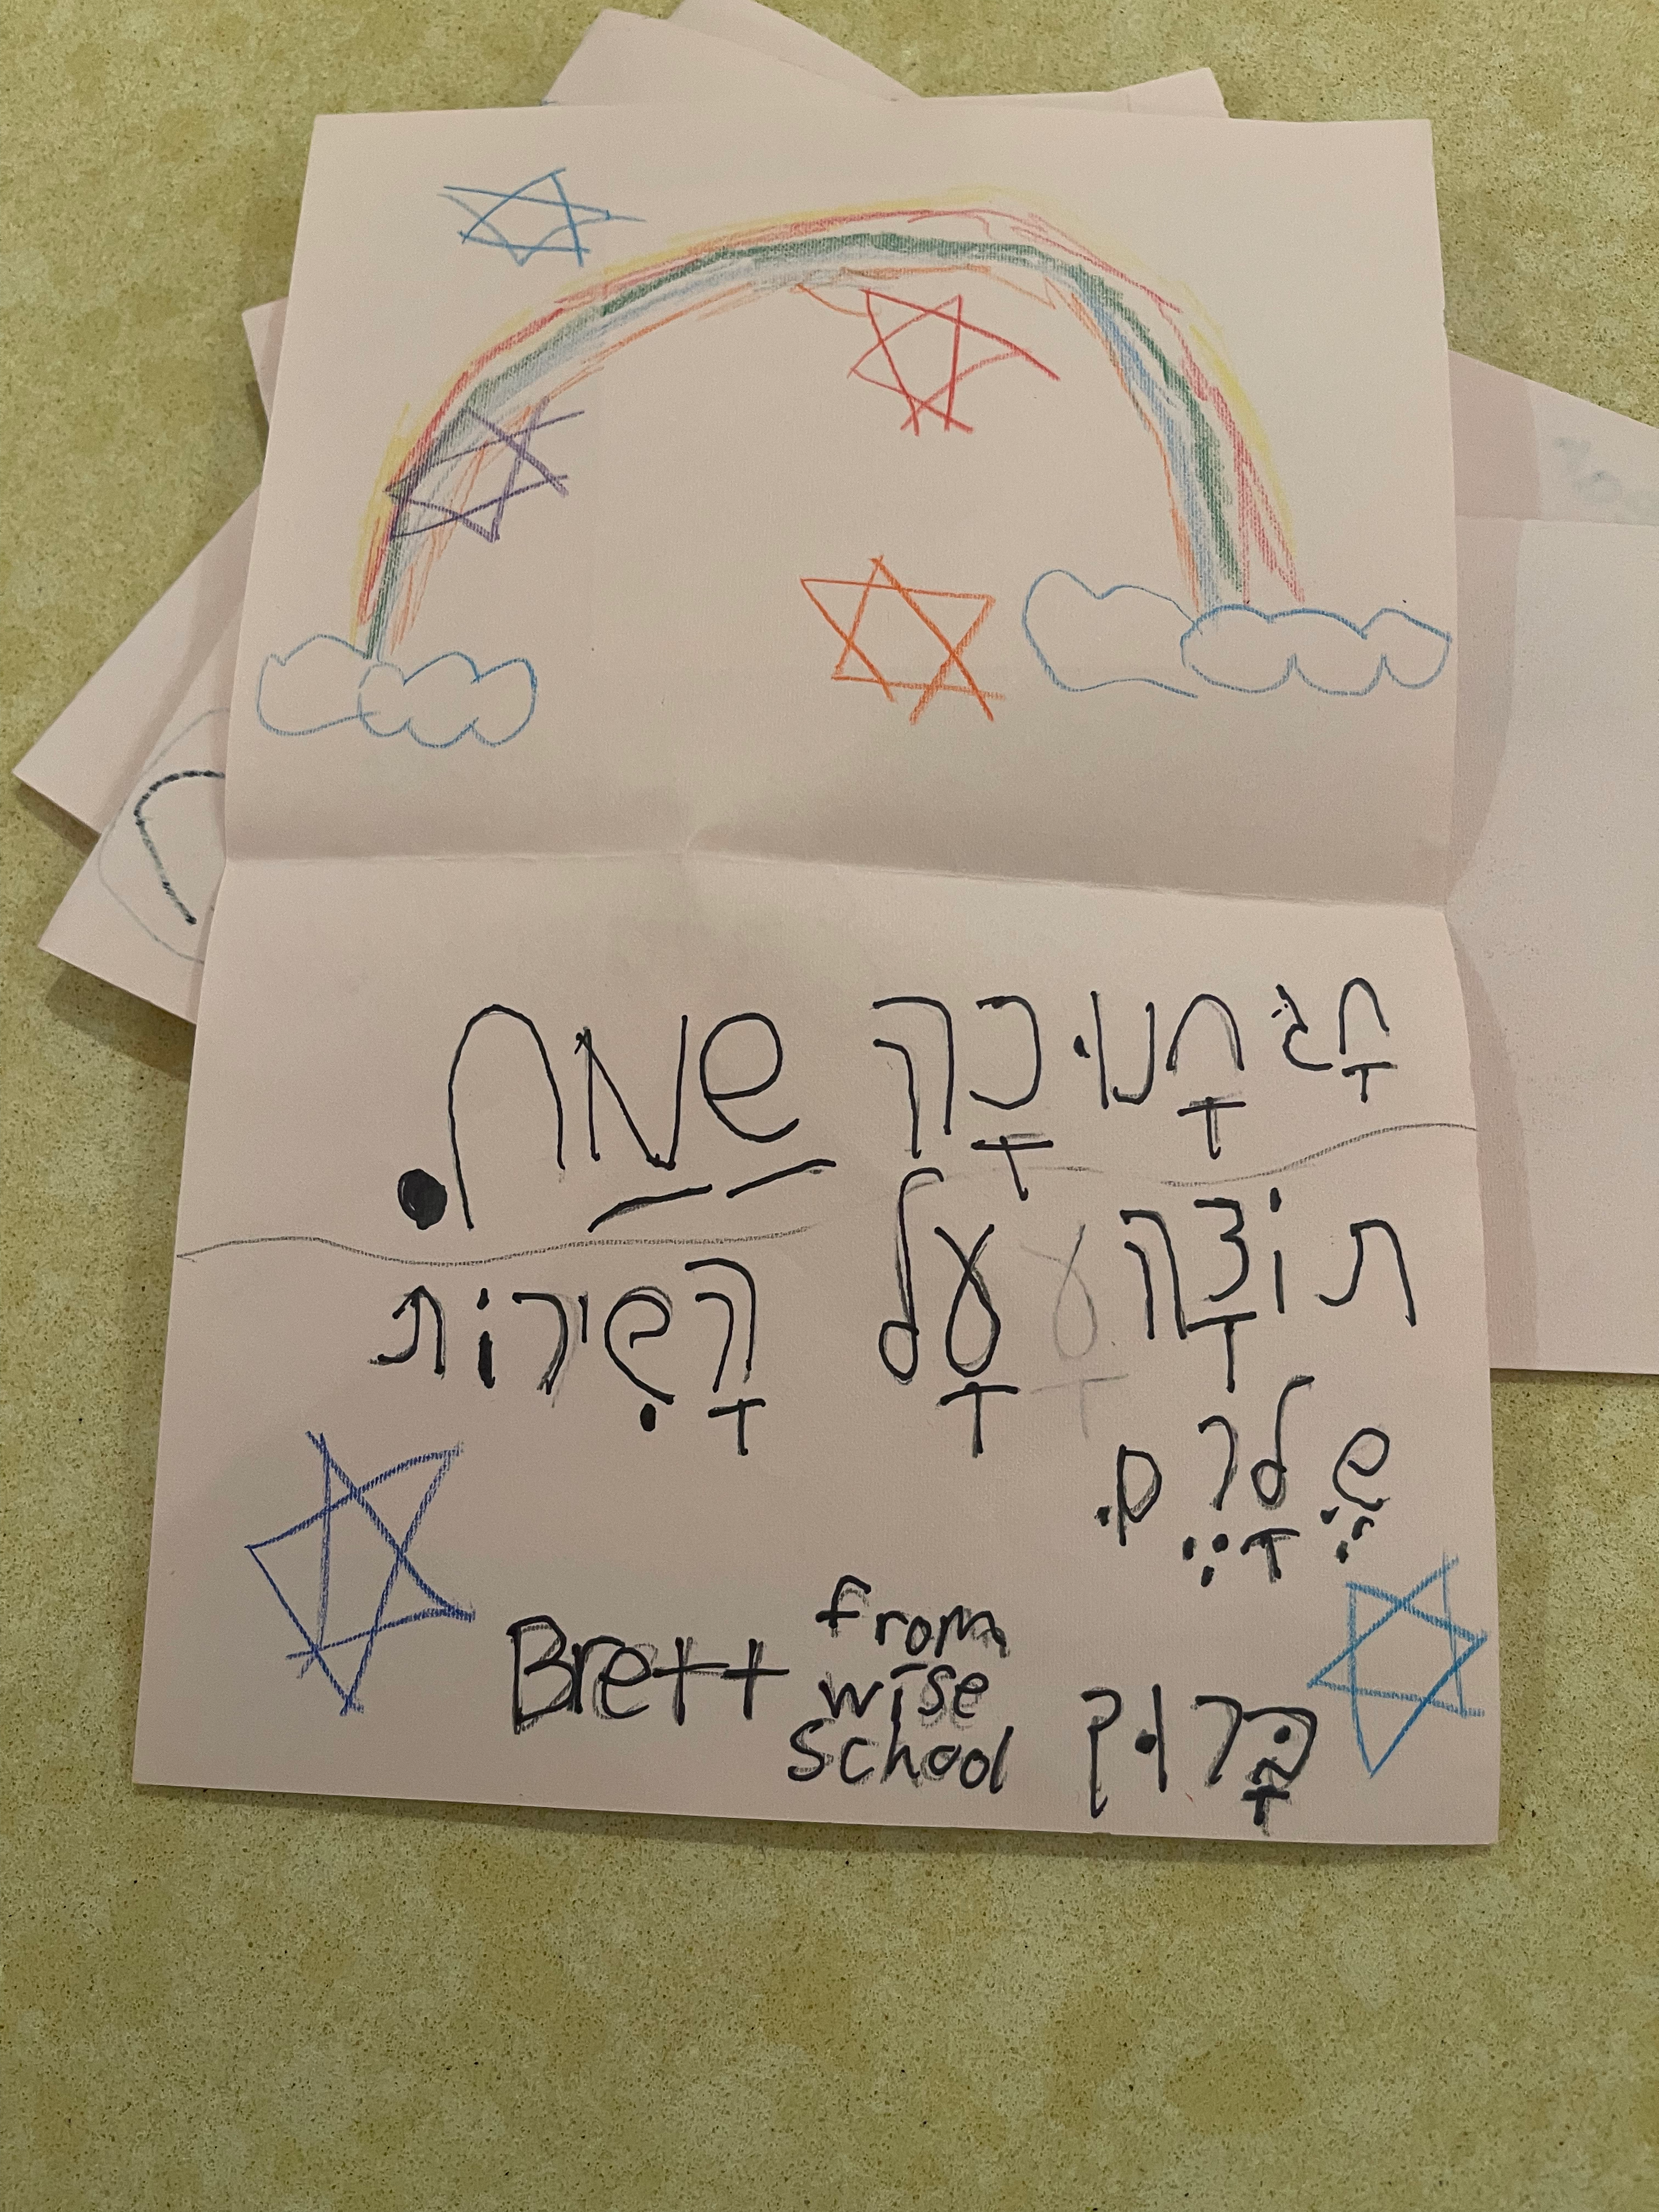 חָג חָנוּכָה שַמַח.
תוֹדָה עָל הָשִירוֹת
שֶלָרֶם.
Brett from
wise
school
בָּרוּך